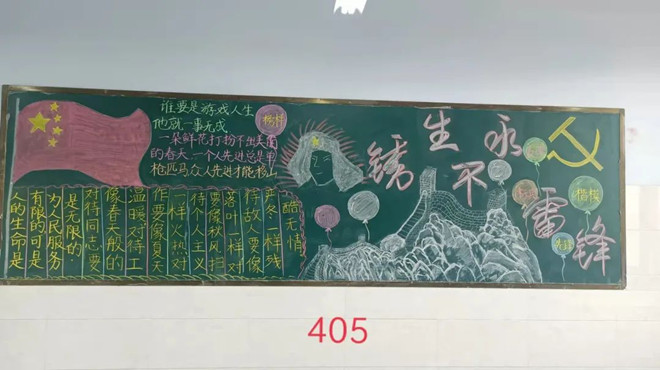 谁要是游戏人生
他就一事无成
一朵鲜花打扮不出美丽
的春天一个人先进总是单
枪匹马众人先进才能移山
榜样
人的生命是
有限的可是
为人民服务
是无限的·
对待同志要
像春天般的
温暖对待工
作要像夏天
一样火热对
待个人主义
要像秋风扫
落叶一样对
待敌人要像
严冬一样残
酷无情
永不生锈
雷锋
楷模
405